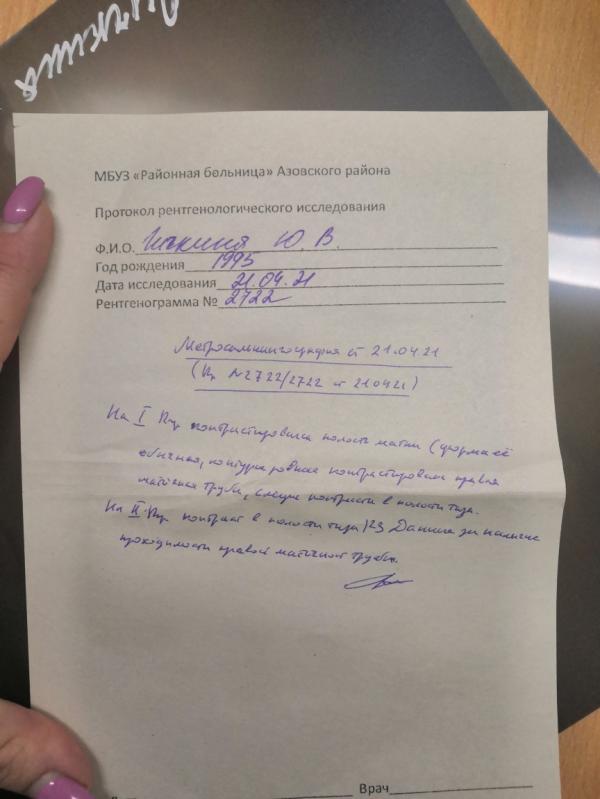 МБУЗ «Районная больница» Азовского района
Протокол рентгенологического исследования
Ф.И.О. Ю. В.
Год рождения 1993
Дата исследования 21.04.21
Рентгенограмма № 2722
Метросальпингография от 21.04.21
(№2722/2722 от 210421)
На I контрастирована полость матки (форма её
обычная, контуры ровные контрастирована правая
маточная труба, следы контраста в полости таза.
На II контраст в полости таза Данные за наличие
проходимости правой маточной трубы.
Врач